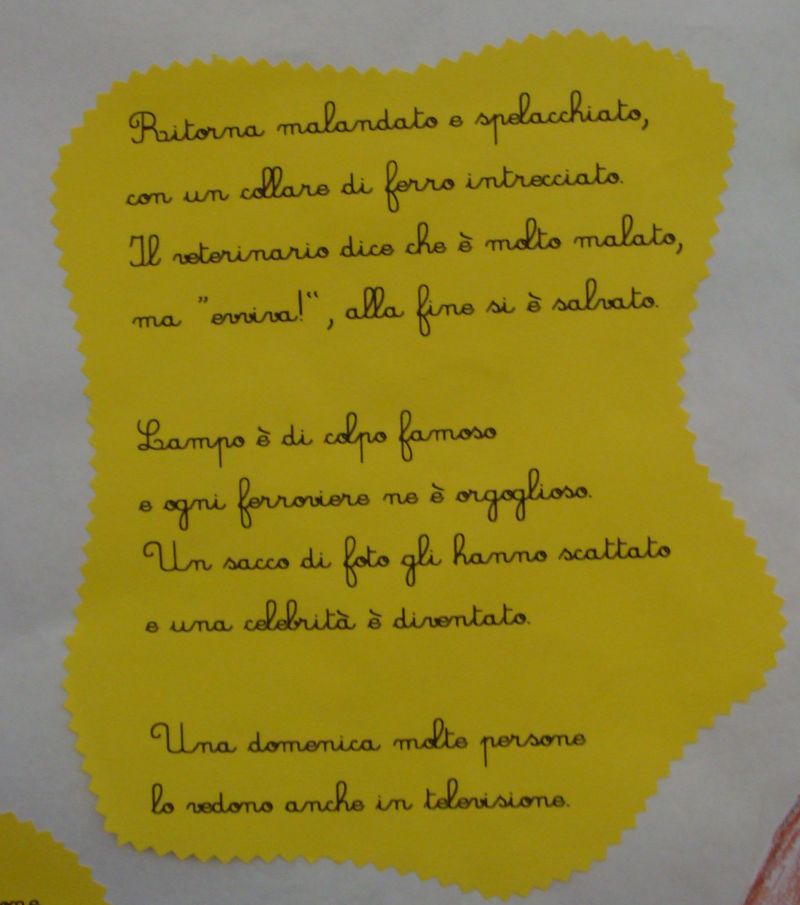 Ritorna malandato e spelacchiato,
con un collare di ferro intrecciato.
Il veterinario dice che è molto malato,
ma "evviva!", alla fine si è salvato.
Lampo è di colpo famoso
e ogni ferroviere ne è orgoglioso.
Un sacco di foto gli hanno scattato
e una celebrità è diventato.
Una domenica molte persone
lo vedono anche in televisione.